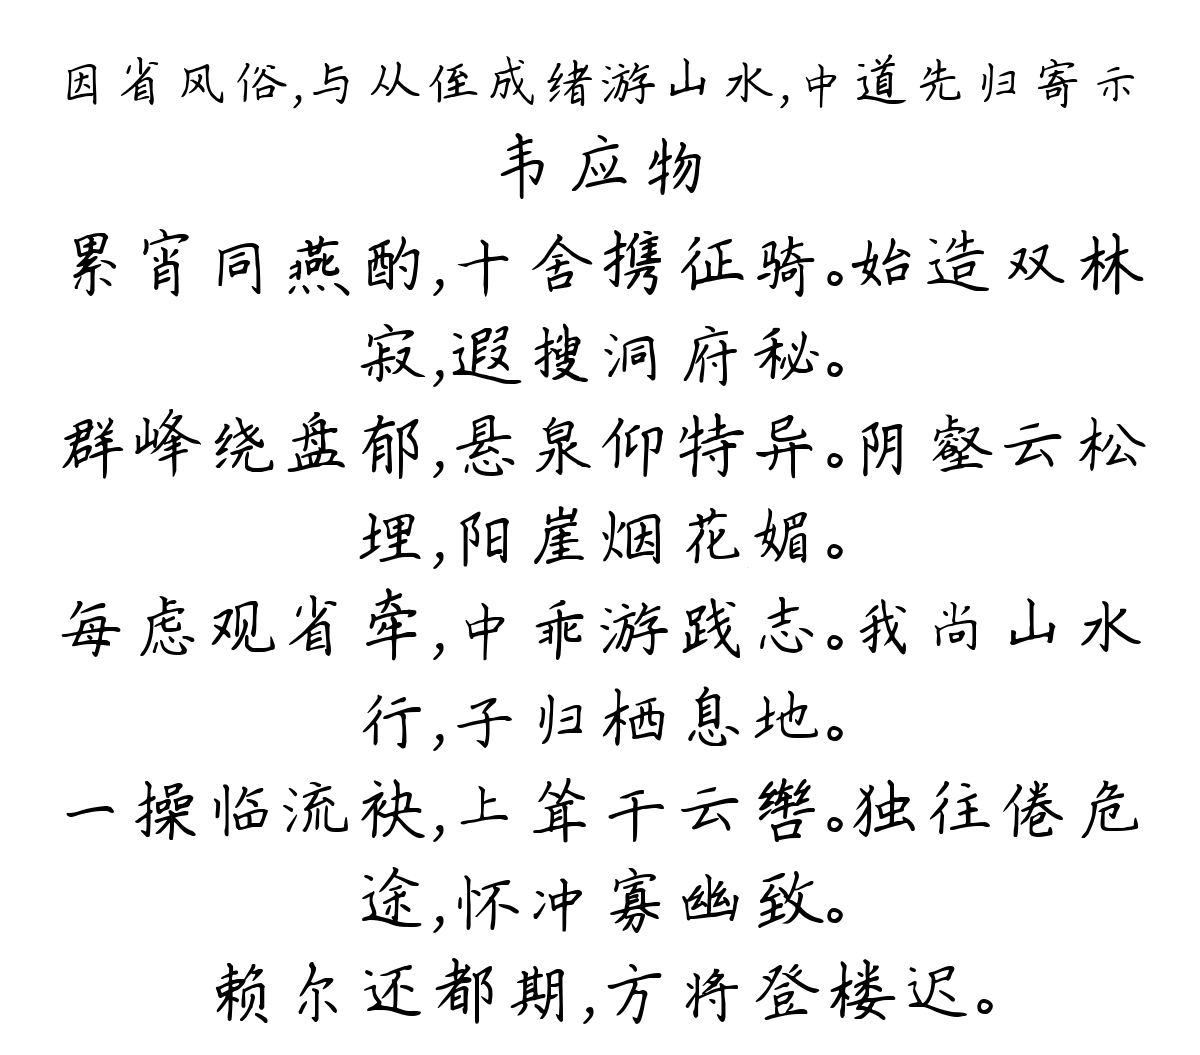 因省风俗,与从侄成绪游山水,中道先归寄示
韦应物
累宵同燕酌,十舍携征骑。始造双林
寂,遐搜洞府秘。
群峰绕盘郁,悬泉仰特异。阴壑云松
埋,阳崖烟花媚。
每虑观省牵,中乖游践志。我尚山水
行,子归栖息地。
一操临流袂,上耸干云辔。独往倦危
途,怀冲寡幽致。
赖尔还都期,方将登楼迟。